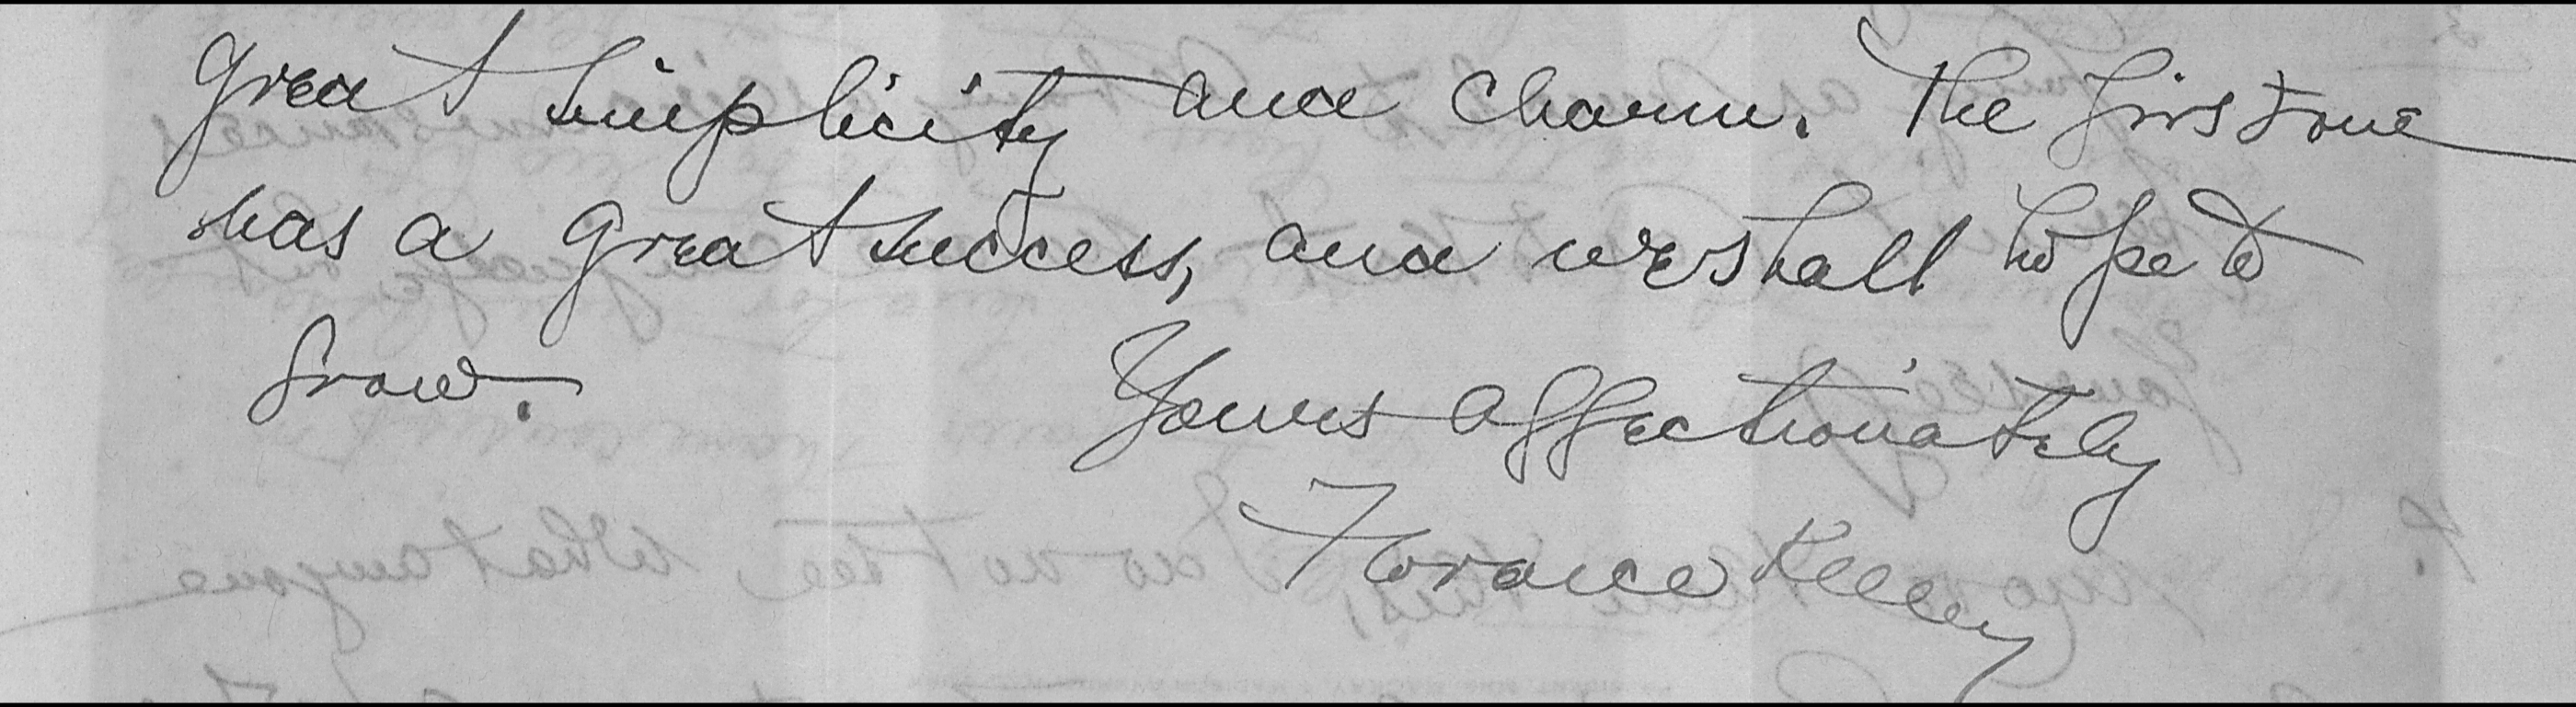 great simplicity and charm. The first one
was a great success, and we shall hope to
grow.
Yours affectionately
Horace Kelley